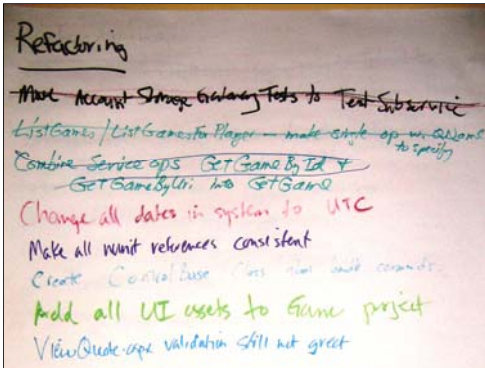 Refactoring
Move Account Storage Gateway Tests to Test Subservice
ListGames / ListGamesForPlayer — make single op w.
to specify
Combine Service ops GetGameById +
GetGameByUri into GetGame
Change all dates in system to UTC
Make all nunit references consistent
Create ControlBase Class
Add all UI assets to Game project
ViewQuote.aspx validation still not great